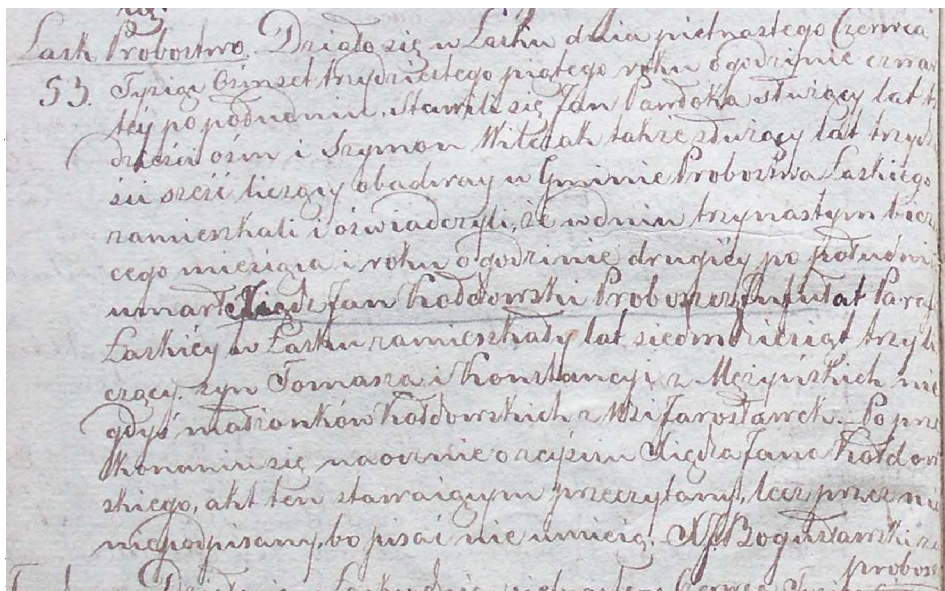 Lask Probostwo. Działo się w Lasku dnia piętnastego Czerwca
53. Tysiąc Ośmset trzydziestego piątego roku o godzinie czwar
téy po południu, Stawili się Jan Pawłoka służący lat trzy
dzieści ośm i Szymon Witczak także służący lat trzydzie
ści sześć liczący obadway w Gminie Probostwa Laskiego
zamieszkali i oświadczyli, że w dniu trzynastym bieżą
cego miesiąca i roku o godzinie drugiéy po południu
umarł Xiądz Jan Kołdowski Proboszcz Infułat Para
Laskiéy w Lasku zamieszkały lat siedmdziesiąt trzy li
czący. syn Tomasza i Konstancyi z Mężyńskich nie
gdyś małżonków Kołdowskich z Wsi Jarosławek. Po prze
konaniu się naocznie o zejściu Xiędza Jana Kołdow
skiego, akt ten stawaiącym przeczytany, lecz przez nich
niepodpisany, bo pisać nie umieią. X J Bogusławski
probos